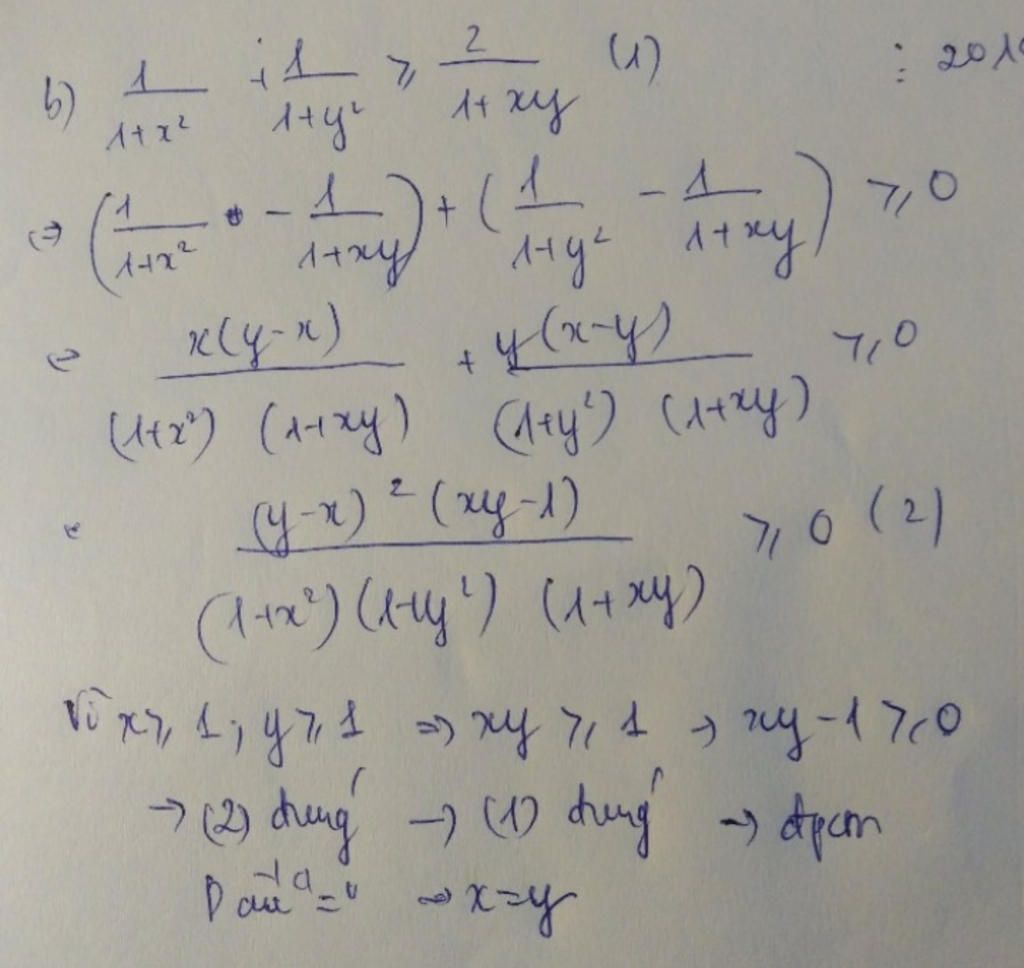 b) 1/(1+x²) + 1/(1+y²) ⩾ 2/(1+xy) (1) : 201
⇔ (1/(1+x²) - 1/(1+xy)) + (1/(1+y²) - 1/(1+xy)) ⩾ 0
⇔ x(y-x)/((1+x²)(1+xy)) + y(x-y)/((1+y²)(1+xy)) ⩾ 0
⇔ (y-x)²(xy-1)/((1+x²)(1+y²)(1+xy)) ⩾ 0 (2)
Vì x⩾1; y⩾1 ⇒ xy ⩾ 1 → xy-1 ⩾ 0
→ (2) đúng → (1) đúng → đpcm
Dấu "=" ⇒ x=y